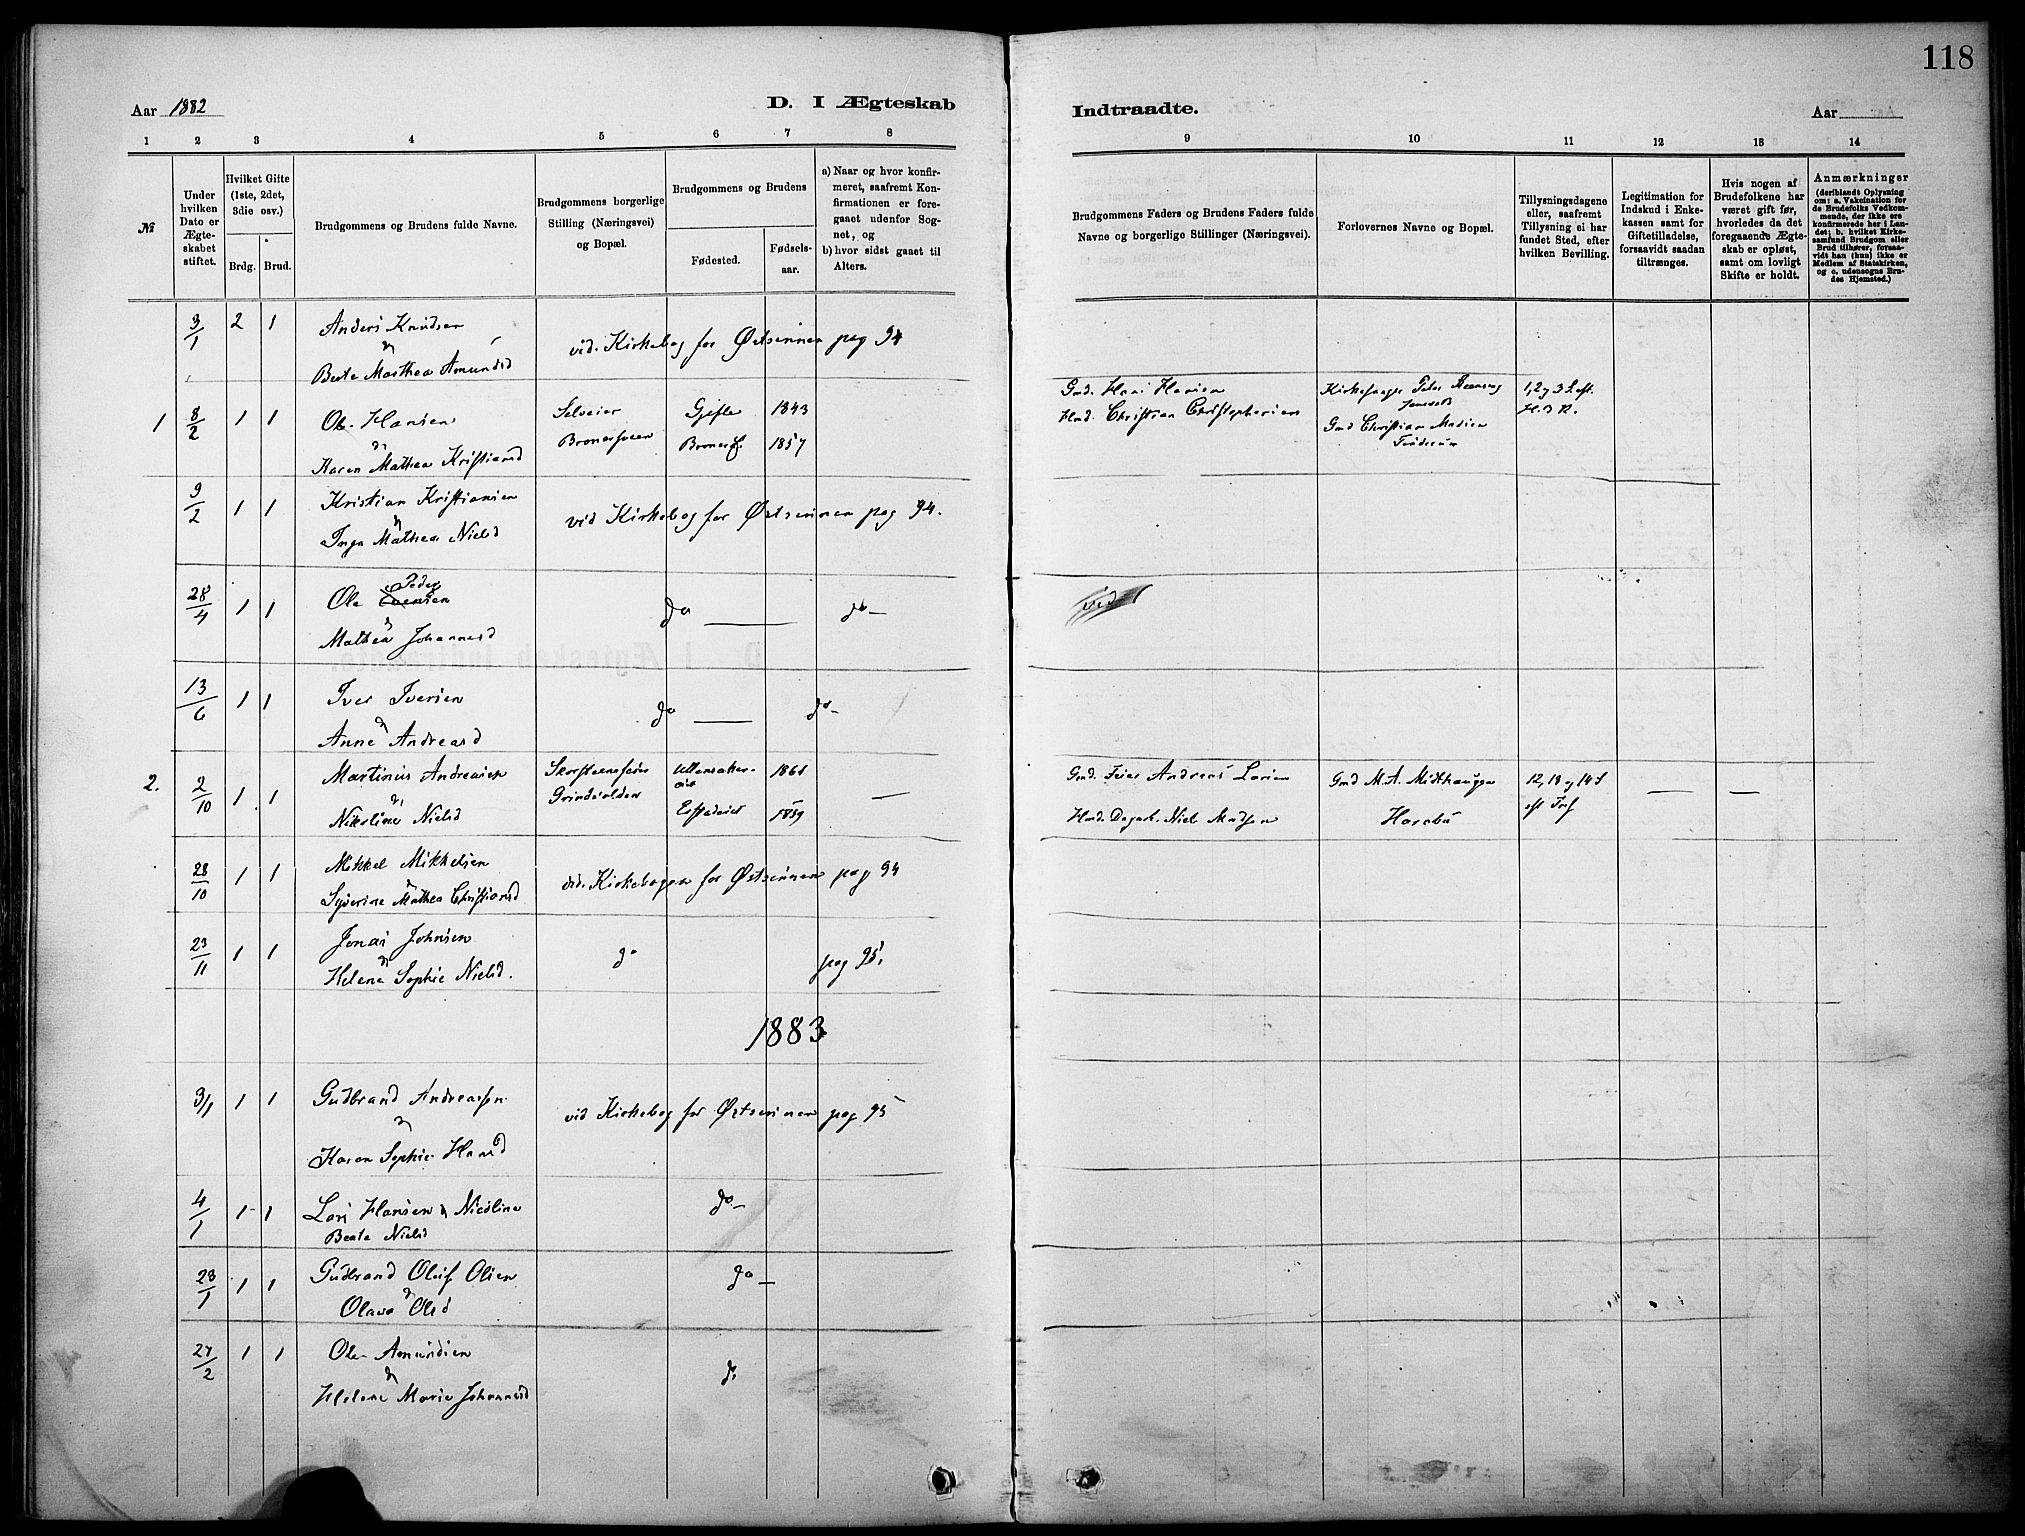 118
Aar 1882
D. I Ægteskab
Indtraadte.
Aar
1 2 3 4 5 6 7 8
9 10 11 12 13 14
№
Under hvilken Dato er Ægteskabet stiftet.
Hvilket Gifte (1ste, 2det, 3die osv.)
Brdg. Brud.
Brudgommens og Brudens fulde Navne.
Brudgommens borgerlige Stilling (Næringsvei) og Bopæl.
Brudgommens og Brudens
Fødested.
Fødselsaar.
a) Naar og hvor konfirmeret, saafremt Konfirmationen er foregaaet udenfor Sognet, og
b) hvor sidst gaaet til Alters.
Brudgommens Faders og Brudens Faders fulde Navne og borgerlige Stillinger (Næringsvei).
Forlovernes Navne og Bopæl.
Tillysningsdagene eller, saafremt Tillysning ei har fundet Sted, efter hvilken Bevilling.
Legitimation for Indskud i Enkekassen samt for Giftetilladelse, forsaavidt saadan tiltrænges.
Hvis nogen af Brudefolkene har været gift før, hvorledes da det foregaaende Ægteskab er opløst, samt om lovligt Skifte er holdt.
Anmærkninger
(deriblandt Oplysning om: a. Vakcination for de Brudefolks Vedkommende, der ikke ere konfirmerede her i Landet; b. hvilket Kirkesamfund Brudgom eller Brud tilhører, forsaavidt han (hun) ikke er Medlem af Statskirken, og c. udensogns Brudes Hjemsted.)
3/1 2 1 Anders Knudsen
vid. Kirkebog for Østsinnen pag 94
Beate Marthea Amundsd
1 8/2 1 1 Ole Hansen Selveier Gjefle 1843 Gmd. Hans Hansen Kirkesanger Peter 1, 2 og 3 S. eft.
Karen Mathea Kristiansd 1857 Hmd. Christian Christophersen Gmd Christian Madsen H. 3 K.
9/2 1 1 Kristian Kristiansen
vid Kirkebog for Østsinnen pag 94.
Inga Mathea Nielsd
28/4 1 1 Ole Peder Evensen do do vid
Mathea Johannesd
13/6 1 1 Iver Iversen do do
Anne Andreasd
2. 2/10 1 1 Martinus Andreasen Skorsteensfeier Ullensaker 1861 Gmd. Feier Andreas Larsen Gmd M. A. Midthaugen 12, 13 og 14 S
Nikoline Nielsd 1859 Hmd. Dagarb. Niels Madsen eft Tref
28/10 1 1 Mikkel Mikkelsen
vid. Kirkebogen for Østsinnen pag 94
Syverine Mathea Christiansd
23/11 1 1 Jonas Johnsen
Helene Sophie Nielsd. do pag 95,
1883
3/1 1 1 Gudbrand Andreassen
vid Kirkebog for Østsinnen pag 95
Karen Sophie Hansd
4/1 1 1 Lars Hansen & Nicoline do
Beate Nielsd
23/1 1 1 Gudbrand Oluf Olsen do
Olava Olsd
27/2 1 1 Ole Amundsen do
Helene Marie Johannesd